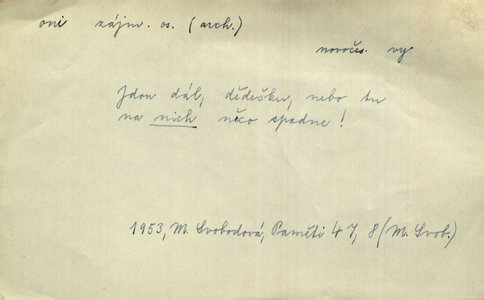 oni zájm. os. (arch.)
novočes. vy
Jdou dál, dědečku, nebo tu
na nich něco spadne!
1953, M. Svobodová, Paměti 47, 8 (M. Svob.)